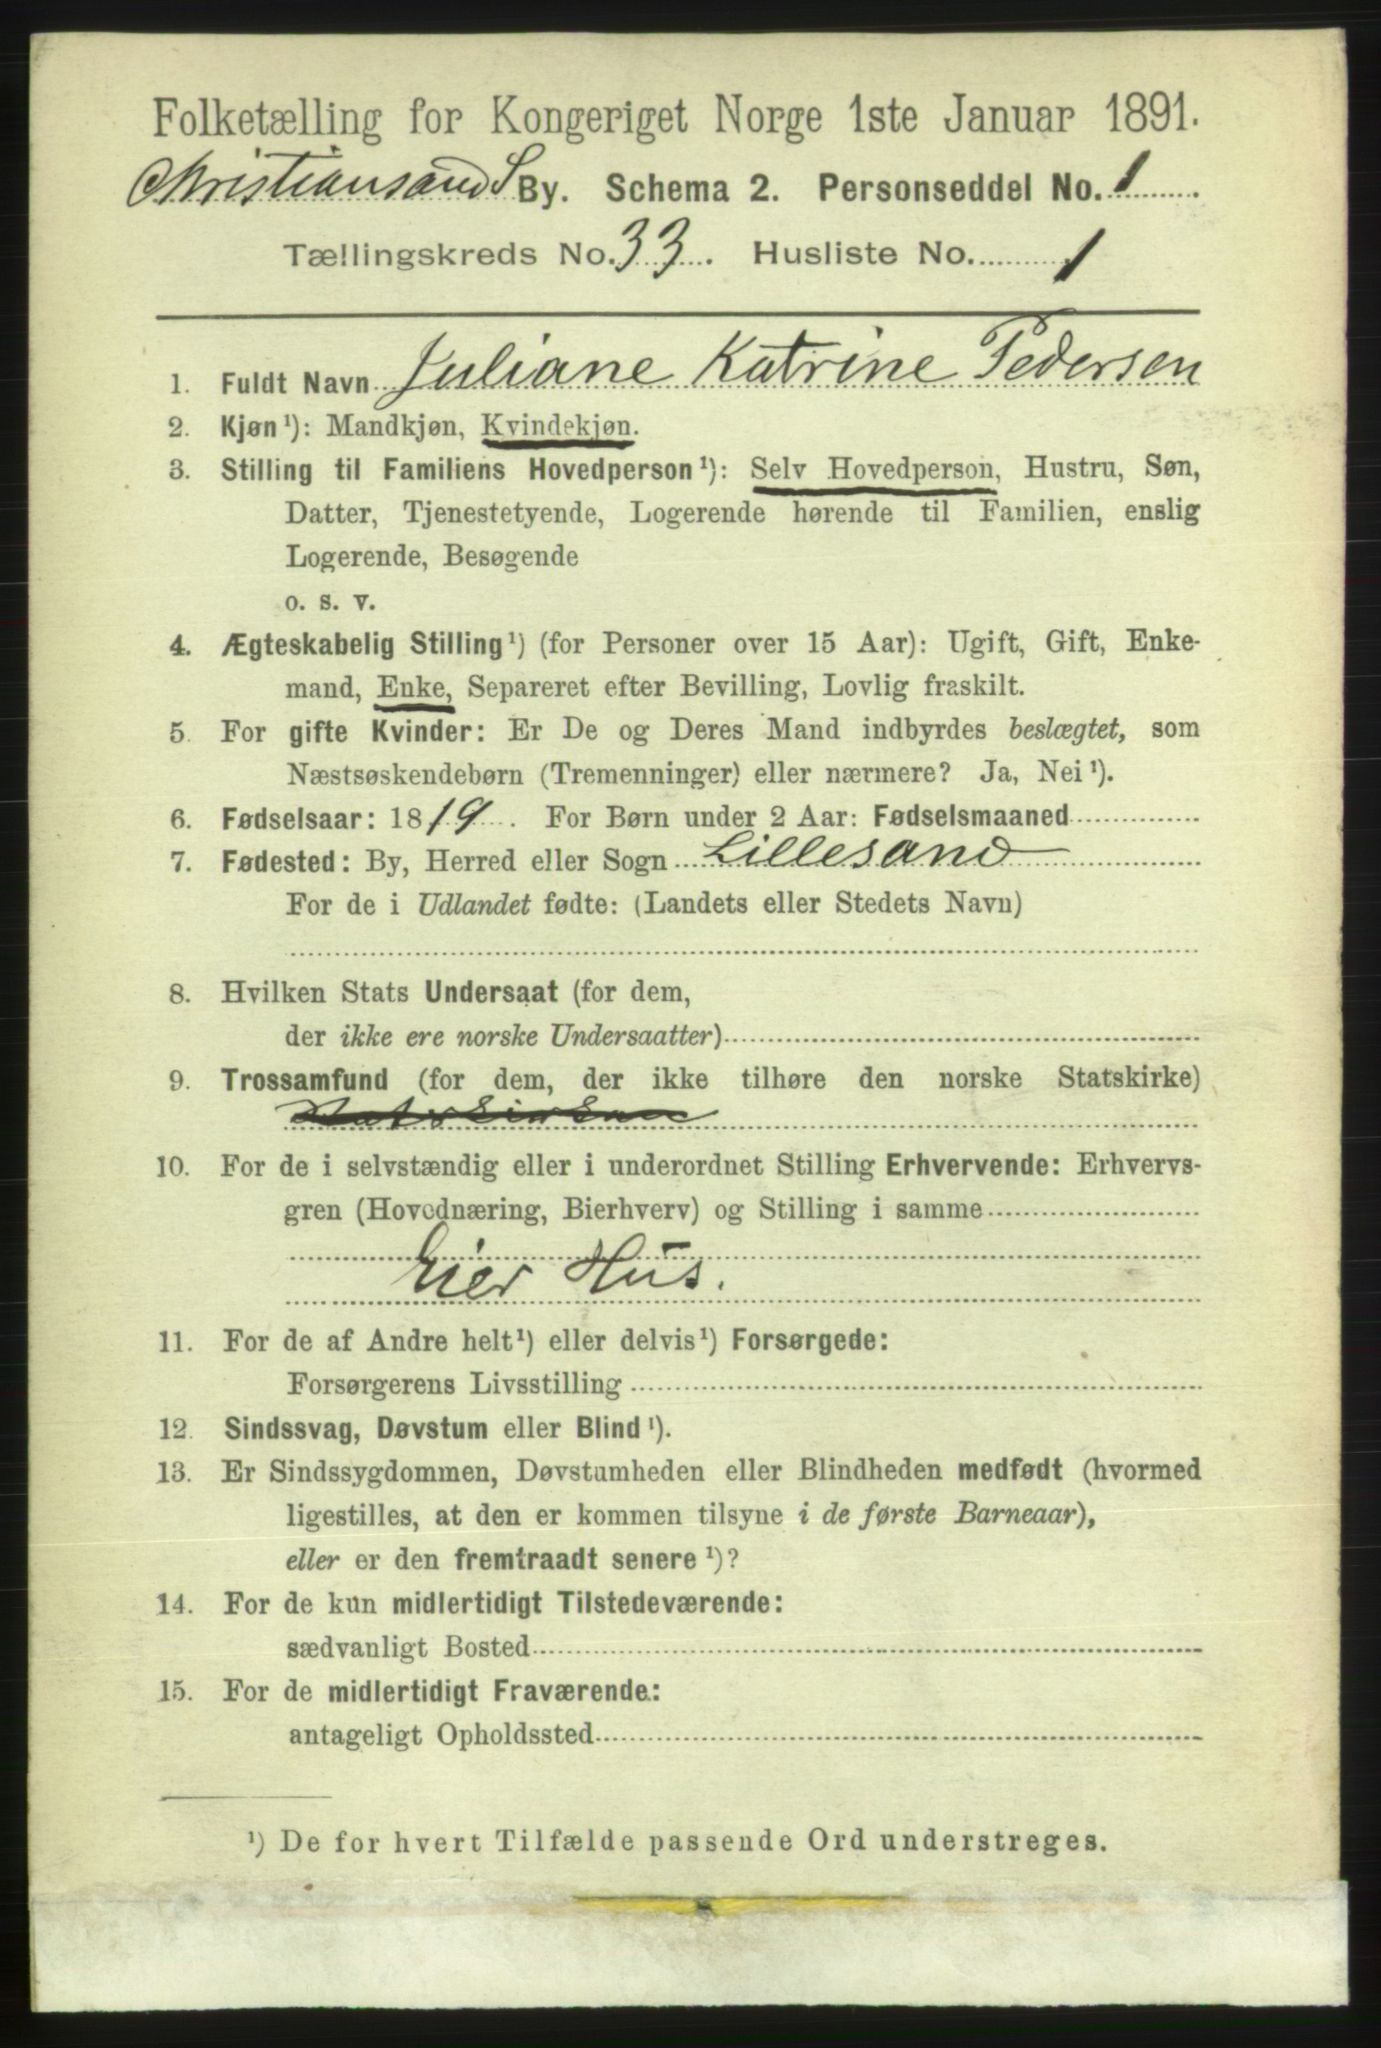 Folketælling for Kongeriget Norge 1ste Januar 1891.
Christiansands By. Schema 2. Personseddel No. 1
Tællingskreds No. 33. Husliste No. 1
1. Fuldt Navn Juliane Katrine Pedersen
2. Kjøn¹): Mandkjøn, Kvindekjøn.
3. Stilling til Familiens Hovedperson¹): Selv Hovedperson, Hustru, Søn,
Datter, Tjenestetyende, Logerende hørende til Familien, enslig
Logerende, Besøgende
o. s. v.
4. Ægteskabelig Stilling¹) (for Personer over 15 Aar): Ugift, Gift, Enke-
mand, Enke, Separeret efter Bevilling, Lovlig fraskilt.
5. For gifte Kvinder: Er De og Deres Mand indbyrdes beslægtet, som
Næstsøskendebørn (Tremenninger) eller nærmere? Ja, Nei¹).
6. Fødselsaar: 1819. For Børn under 2 Aar: Fødselsmaaned
7. Fødested: By, Herred eller Sogn Lillesand
For de i Udlandet fødte: (Landets eller Stedets Navn)
8. Hvilken Stats Undersaat (for dem,
der ikke ere norske Undersaatter)
9. Trossamfund (for dem, der ikke tilhøre den norske Statskirke)
Statskirken
10. For de i selvstændig eller i underordnet Stilling Erhvervende: Erhvervs-
gren (Hovednæring, Bierhverv) og Stilling i samme
Eier Hus.
11. For de af Andre helt¹) eller delvis¹) Forsørgede:
Forsørgerens Livsstilling
12. Sindssvag, Døvstum eller Blind¹).
13. Er Sindssygdommen, Døvstumheden eller Blindheden medfødt (hvormed
ligestilles, at den er kommen tilsyne i de første Barneaar),
eller er den fremtraadt senere¹)?
14. For de kun midlertidigt Tilstedeværende:
sædvanligt Bosted
15. For de midlertidigt Fraværende:
antageligt Opholdssted
¹) De for hvert Tilfælde passende Ord understreges.